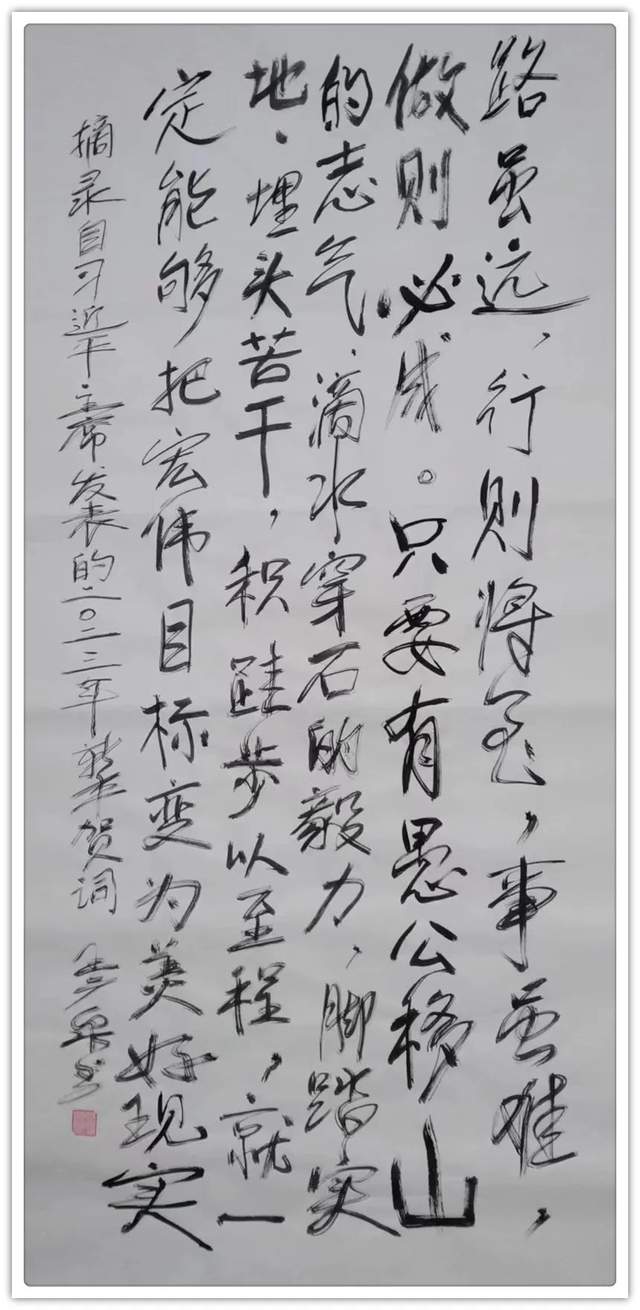 路虽远，行则将至，事虽难，
做则必成。只要有愚公移山
的志气、滴水穿石的毅力，脚踏实
地，埋头苦干，积跬步以至程，就一
定能够把宏伟目标变为美好现实
摘录自习近平主席发表的二〇二三年新年贺词